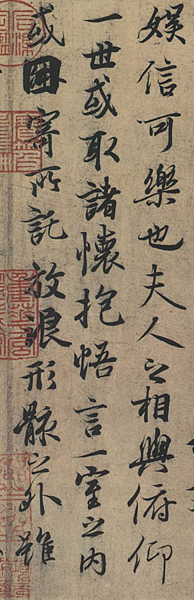 娛信可樂也夫人之相與俯仰
一世或取諸懷抱悟言一室之內
或因寄所託放浪形骸之外雖